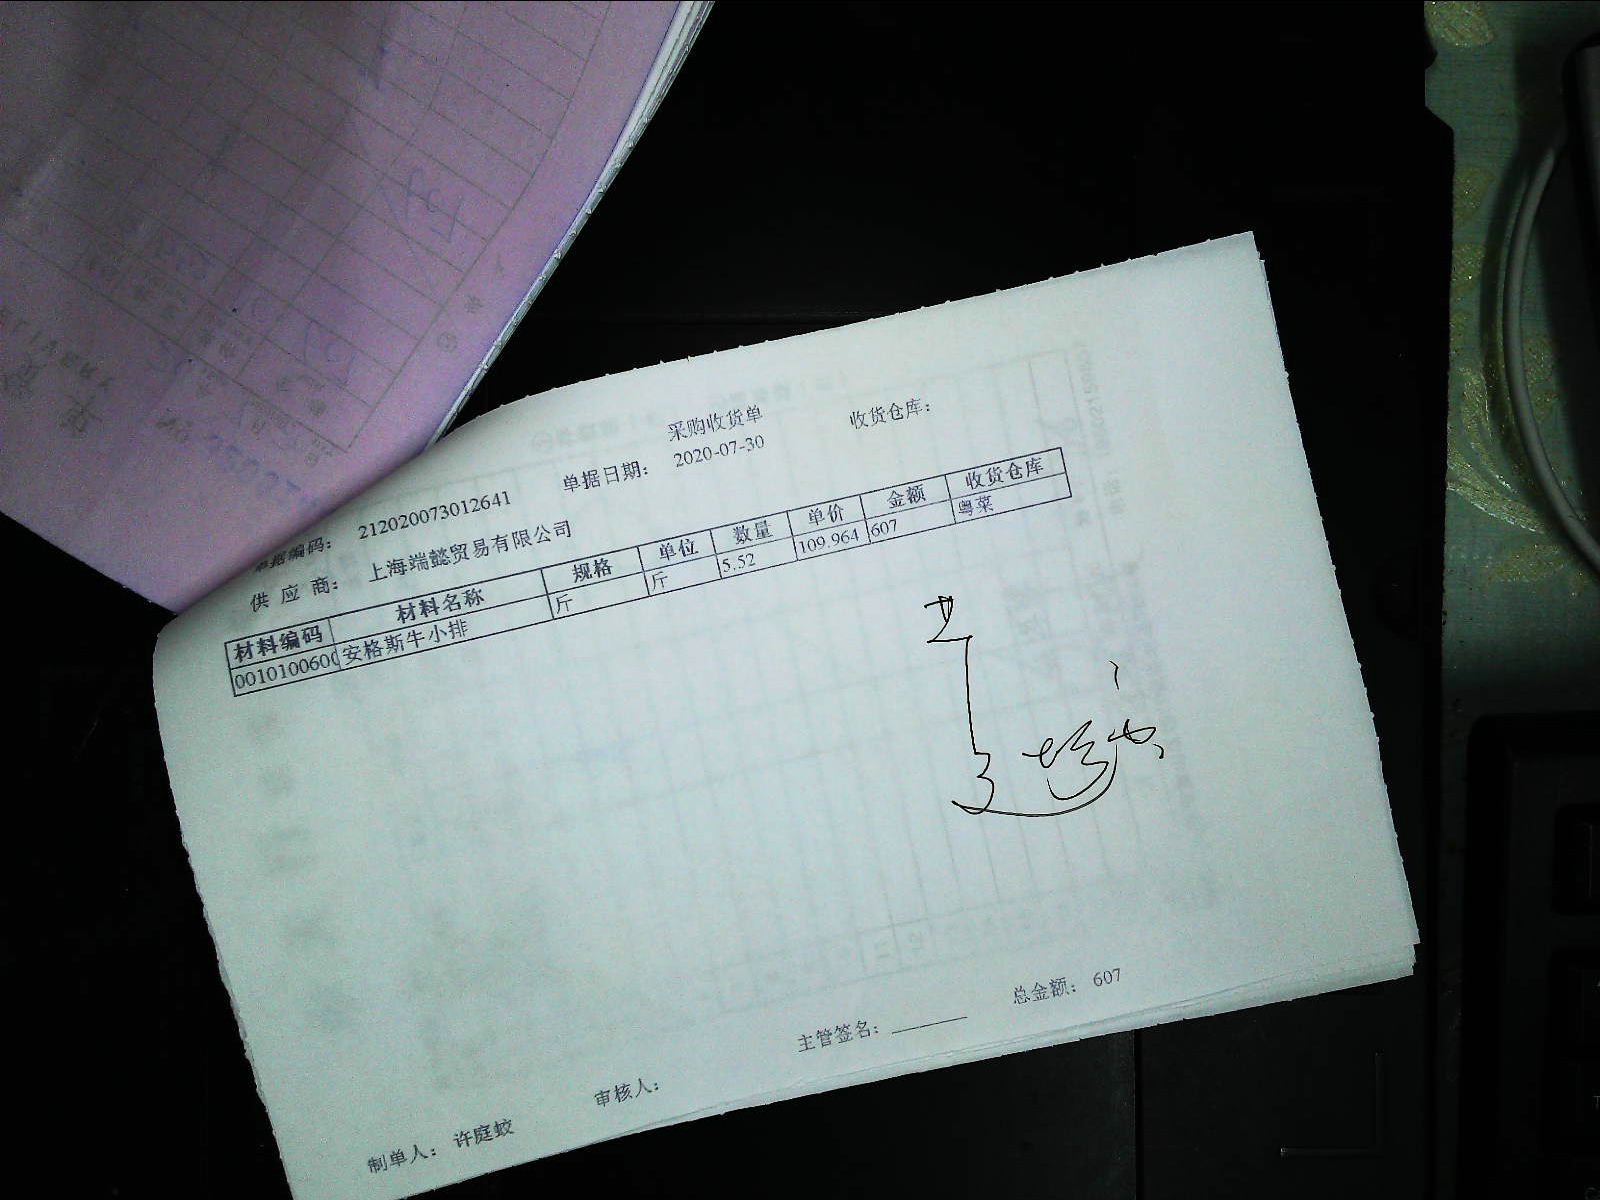 采购收货单
收货仓库：
单据编码： 212020073012641 单据日期： 2020-07-30
供 应 商： 上海端懿贸易有限公司
材料编码 材料名称 规格 单位 数量 单价 金额 收货仓库
001010060 安格斯牛小排 斤 斤 5.52 109.964 607 粤菜
总金额： 607
主管签名：
审核人：
制单人： 许庭蛟